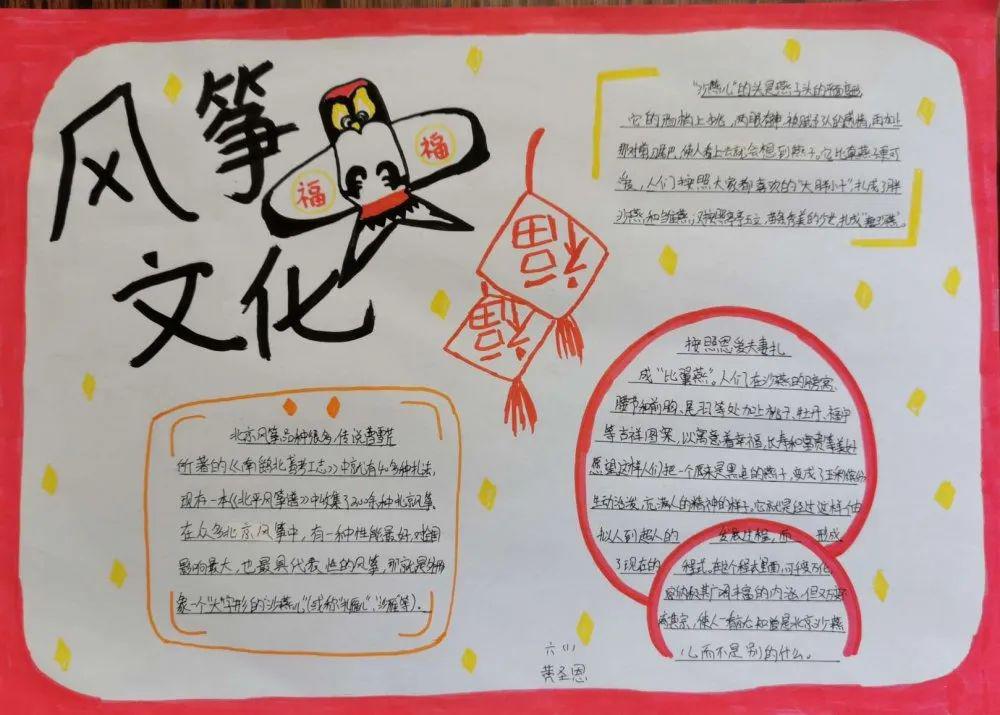 风筝
文化
福
福
福
福
"沙燕儿"的头是燕子头的平面图
它的两梢上挑，两眼有神，被赋予人的感情，再加上
那对剪刀尾巴，使人看上去就会想到燕子。它比真燕子更可
爱，人们按照大家都喜欢的"大胖小子"，扎成了胖
沙燕和雏燕；又按照亭亭玉立、苗条秀美的少女，扎成"瘦沙燕"。
按照恩爱夫妻扎
成"比翼燕"。人们在沙燕的膀窝、
腰节和前胸、尾羽等处加上桃子、牡丹、蝙蝠
等吉祥图案，以寓意着幸福、长寿和富贵等美好
愿望这样人们把一个原来是黑色的燕子，变成了五彩缤纷
生动活泼，充满人的精神的样子。它就是经过这样一个由
拟人到超人的 发展过程，而 形成
了现在的 程式。在这个程式里面，可千变万化，
容纳极其广阔丰富的内涵，但又万变
离其宗，使人一看就知道是北京沙燕
儿而不是别的什么。
北京风筝品种很多，传说曹雪芹
所著的《南鹞北鸢考工志》中就有40多种扎法，
现存一本《北平风筝谱》中收集了200余种北京风筝
在众多北京风筝中，有一种性能最好，对全国
影响最大，也最具代表性的风筝，那就是
象一个"大"字形的沙燕儿"(或称"扎燕儿"、沙雁等)．
六(1)
黄圣恩